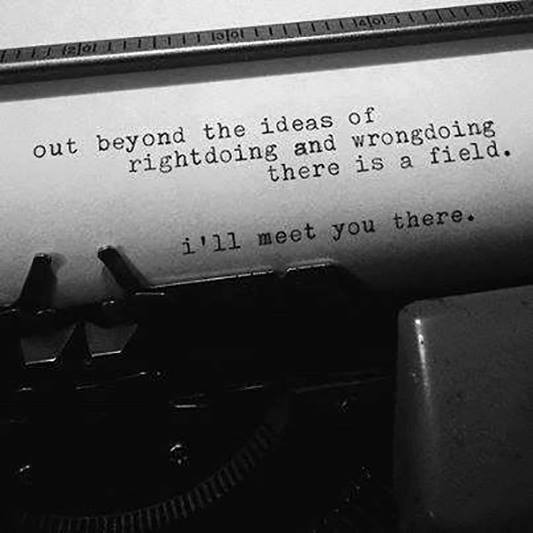 20 30 40 50
out beyond the ideas of
rightdoing and wrongdoing
there is a field.
i'll meet you there.